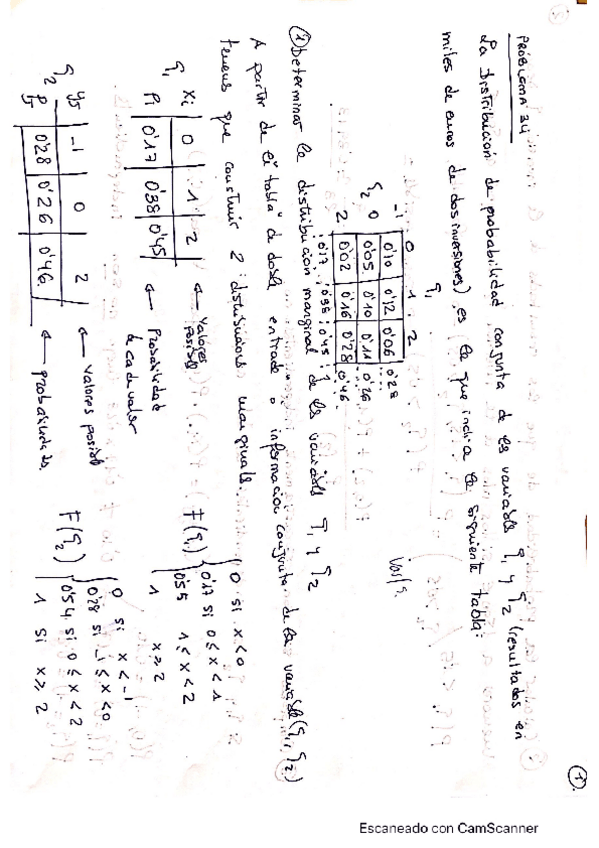 ①
PROBLEMA 34
La Distribucion de probabilidad conjunta de las variables ξ₁ y ξ₂ (resultados en
miles de euros de dos inversiones) es la que indica la siguiente tabla:
ξ₁
0 1 2
-1 0'10 0'12 0'06 0'28
ξ₂ 0 0'05 0'10 0'11 0'26
2 0'02 0'16 0'28 0'46
0'17 0'38 0'45 1
① Determinar la distribucion marginal de las variables ξ₁ y ξ₂
A partir de la "tabla" de doble entrada o informacion conjunta de la variable (ξ₁, ξ₂)
tenemos que construir 2 distribuciones marginales.
ξ₁ Xi 0 1 2 ← Valores posibles
Pi 0'17 0'38 0'45 ← Probabilidad de cada valor
F(ξ₁) { 0 si x<0
0'17 si 0≤x<1
0'55 1≤x<2
1 x≥2
ξ₂ yj -1 0 2 ← Valores posibles
Pj 0'28 0'26 0'46 ← probabilidades.
F(ξ₂) { 0 si x<-1
0'28 si -1≤x<0
0'54 si 0≤x<2
1 si x≥2
Escaneado con CamScanner